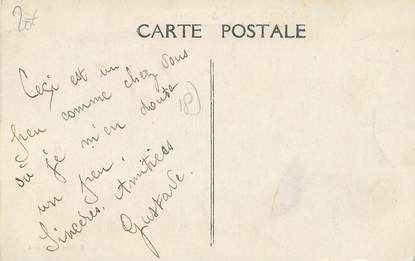 CARTE POSTALE
Ceci est un
peu comme chez vous
où je m'en doute
un peu.
Sincères Amitiés
Gustave.
18)